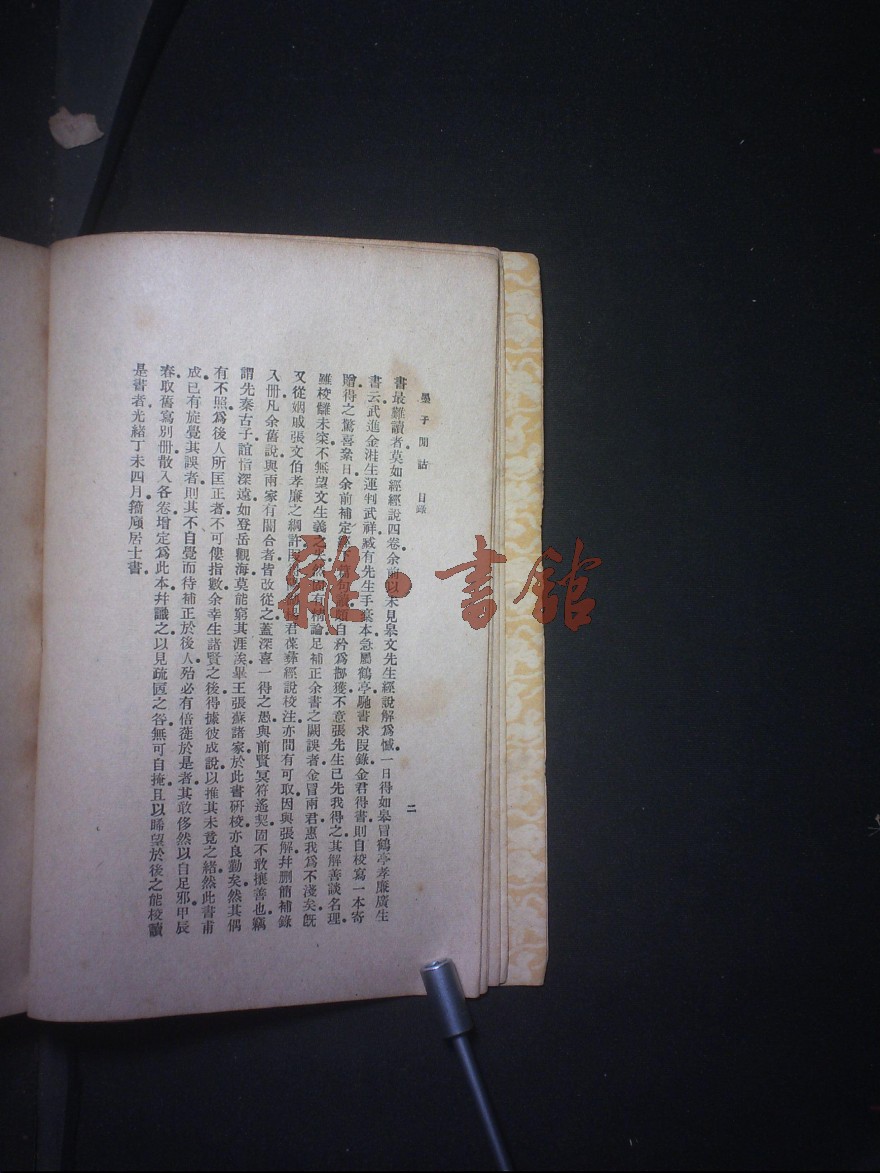 墨子閒詁 目錄 二
書最難讀者莫如經經說四卷余前以未見皋文先生經說解爲憾一日得如皋冒鶴亭孝廉廣生
書云武進金溎生運判武祥臧有先生手稾本急屬鶴亭馳書求叚錄金君得書則自校寫一本寄
贈得之驚喜絫日余前補定經下篇句讀頗自矜爲剏獲不意張先生已先我得之其解善談名理
雖校讎未宷不無望文生義之失然固有精論足補正余書之闕誤者金冒兩君惠我爲不淺矣旣
又從姻戚張文伯孝廉之綱許叚得陽湖楊君葆彝經說校注亦閒有可取因與張解幷刪簡補錄
入册凡余舊說與兩家有闇合者皆改從之蓋深喜一得之愚與前賢冥符遙契固不敢攘善也竊
謂先秦古子誼恉深遠如登岳觀海莫能窮其涯涘畢王張蘇諸家於此書硏校亦良勤矣然其偶
有不照爲後人所匡正者不可僂指數余幸生諸賢之後得據彼成說以推其未竟之緒然此書甫
成已有旋覺其誤者則其不自覺而待補正於後人殆必有倍蓰於是者其敢侈然以自足邪甲辰
春取舊寫別册散入各卷增定爲此本幷識之以見疏陋之咎無可自掩且以睎望於後之能校讀
是書者光緒丁未四月籀廎居士書
雜·書館